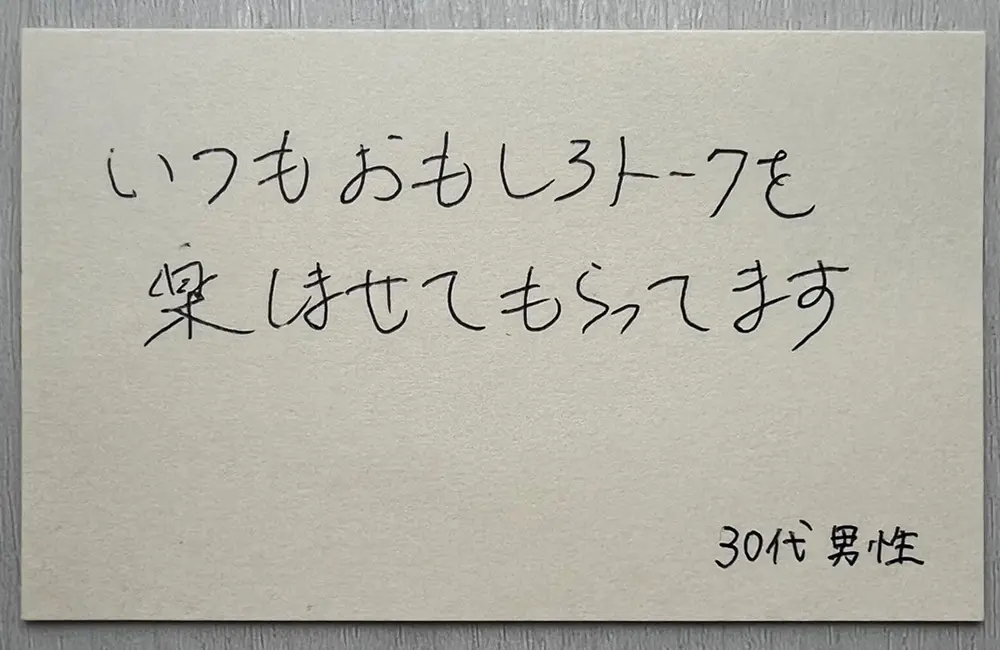 いつもおもしろトークを
楽しませてもらってます
30代 男性